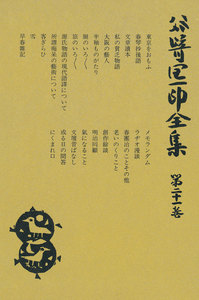 谷崎潤一郎全集 第二十一巻
東京をおもふ
春琴抄後語
文章讀本
私の貧乏物語
大阪の藝人
半袖ものがたり
厠のいろ〳〵
旅のいろ〳〵
源氏物語の現代語譯について
所謂痴呆の藝術について
客ぎらひ
雪
早春雜記
メモランダム
ラヂオ漫談
春團治のことその他
老いのくりこと
創作餘談
明治回顧
氣になること
文壇昔ばなし
或る日の問答
にくまれ口